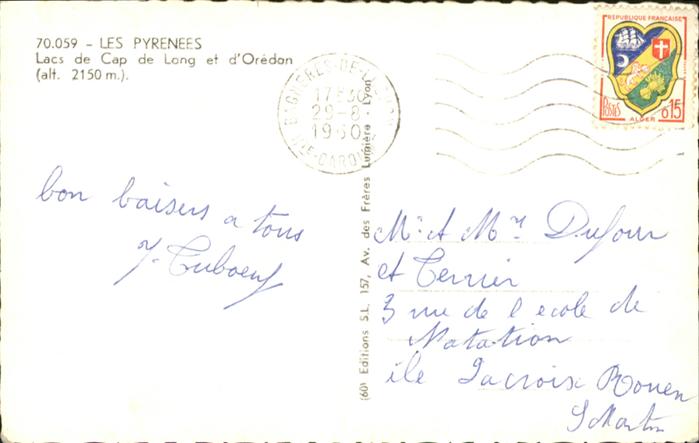 70.059 - LES PYRENEES
Lacs de Cap de Long et d'Orédon
(alt. 2150 m.).
BAGNÈRES-DE-LUCHON
17H30
29-8
1960
HTE-GARONNE
REPUBLIQUE FRANÇAISE
POSTES
0,15
ALGER
bon baisers a tous
Y. Tuboeuf
(60) Editions S.L. 157, Av. des Frères Lumière - Lyon
Mr et Mr Dufour
et Terrier
3 rue de l ecole de
Natation
île Lacroix Rouen
S Martin